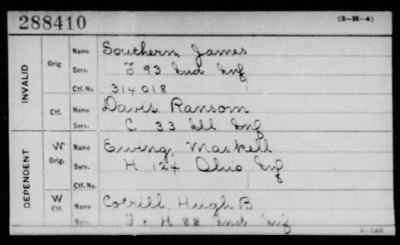 288410
(3-M-4)
INVALID
Orig
Name Southern, James
Serv. F 93 Ind Inf
Ctf. No. 314018
Ctf.
Name Davis Ransom
Serv. C 33 Ill Inf
DEPENDENT
W
Orig.
Name Ewing, Maskell
Serv. H 124 Ohio Inf
Ctf. No.
W
Ctf.
Name Cotrill, Hugh B
Serv. F & H 88 Ind Inf